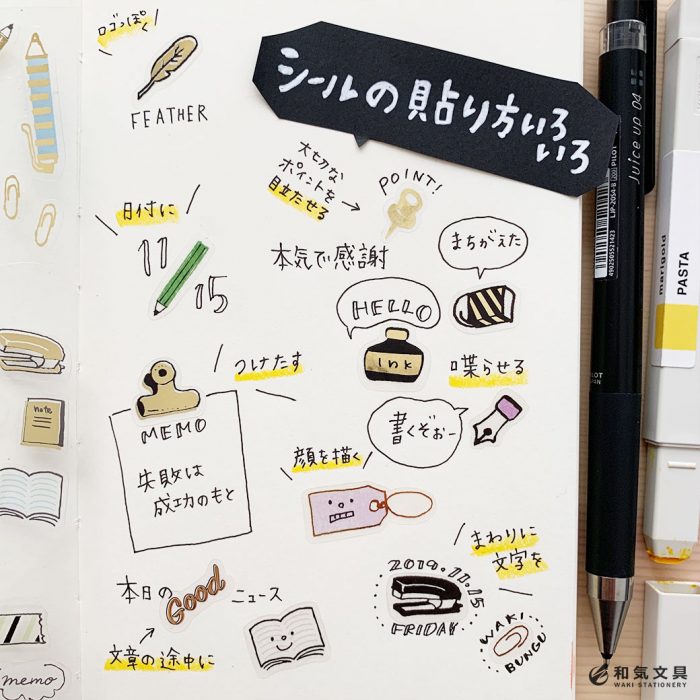 ロゴっぽく
FEATHER
シールの貼り方いろ
いろ
大切な
ポイントを
目立たせる
POINT!
日付に
11
15
本気で感謝
まちがえた
HELLO
Ink
つけたす
喋らせる
MEMO
失敗は
成功のもと
書くぞおー
顔を描く
まわりに
文字を
2019.11.15
FRIDAY
WAKI
BUNGU
本日の Good ニュース
文章の途中に
note
memo
Juice up 04
LJP-20S4-B
PILOT
4902505521423
marigold
PASTA
和気文具
WAKI STATIONERY